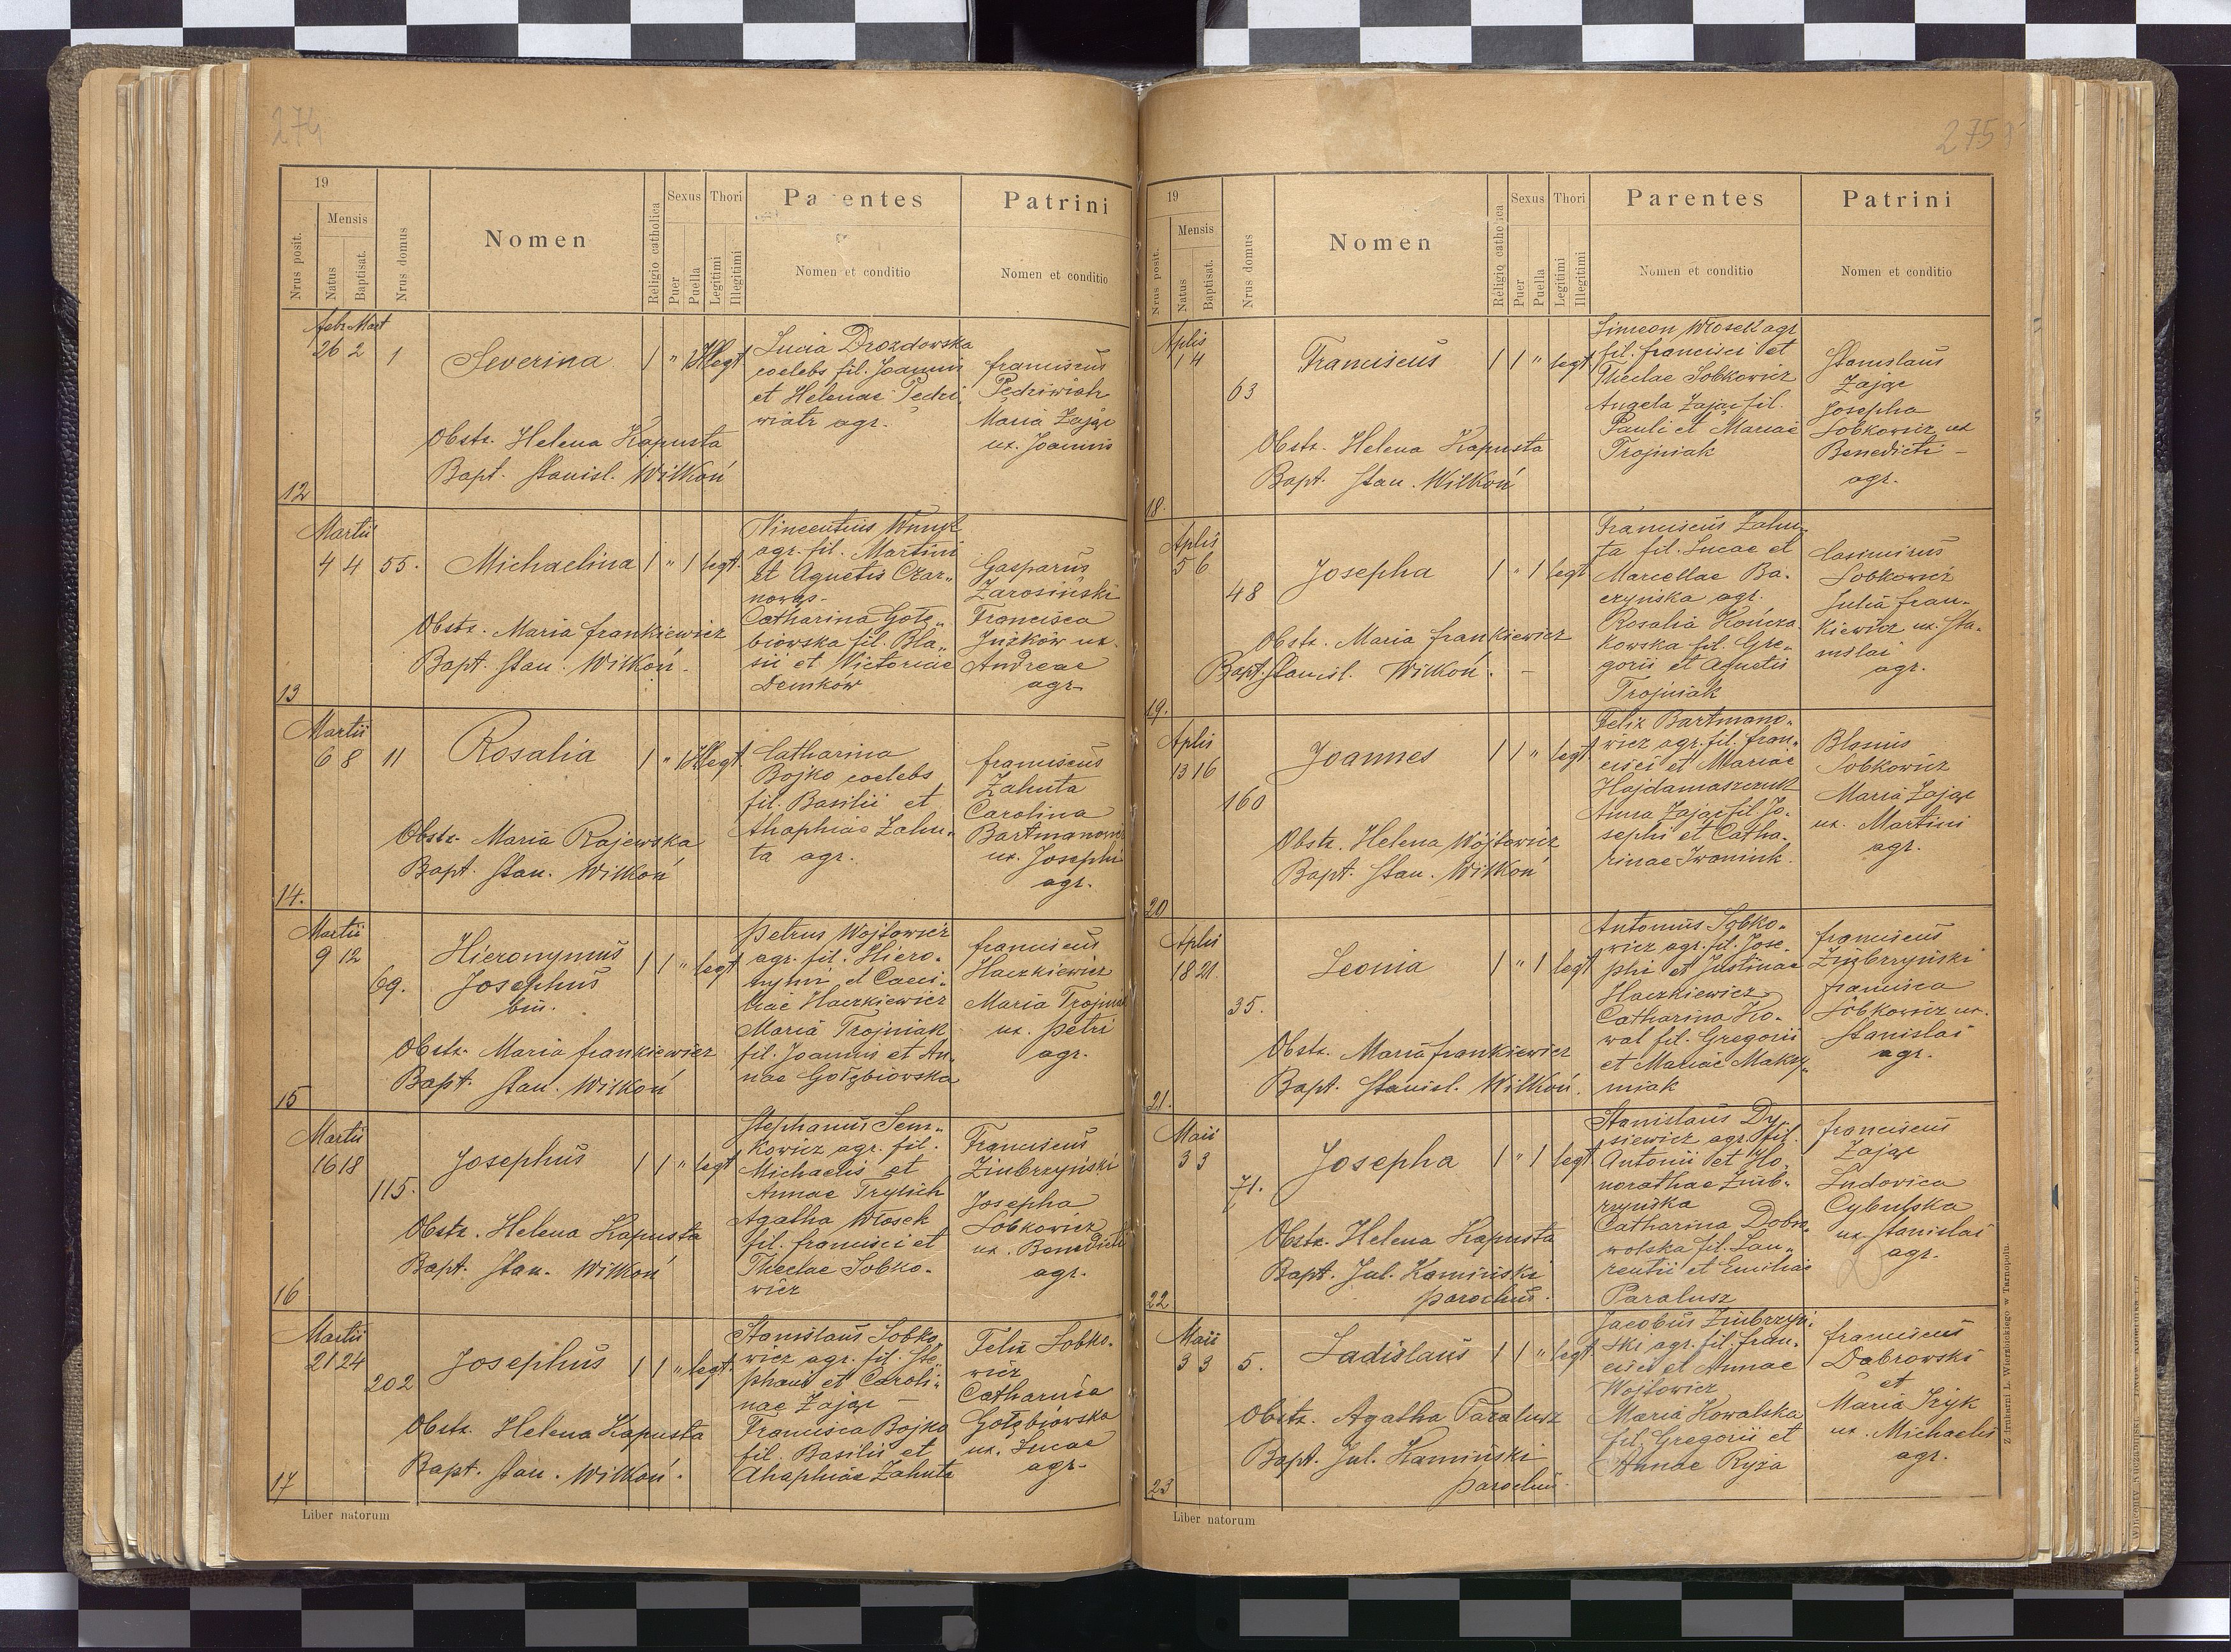 274
19
Nrus posit.
Mensis
Natus
Baptisat.
Nrus domus
Nomen
Religio catholica
Sexus
Puer
Puella
Thori
Legitimi
Illegitimi
Parentes
Nomen et conditio
Patrini
Nomen et conditio
Febr Mart
26 2 1
Severina 1 " 1 Illegt
Obstr. Helena Kapusta
Bapt. Stanisl. Wilkoń
12
Lucia Drozdowska
coelebs fil. Joannis
et Helenae Pedri
wiatr agr.
Franciscus
Pedriwiatr
Maria Zając
ux. Joannis
Martii
4 4 55.
Michaelina 1 " 1 legt.
Obstr. Maria Frankiewicz
Bapt. Stan. Wilkoń
13
Vincentius Wnuk
agr. fil. Martini
et Agnetis Czar„
nowąs-
Catharina Gołę„
biowska fil. Bla„
sii et Victoriae
Demków
Gasparus
Zarosiński
Francisca
Juzków ux.
Andreae
agr.
Martii
6 8 11
Rosalia 1 " 1 Illegt
Obstr. Maria Rajewska
Bapt. Stan. Wilkoń
14.
Catharina
Bojko coelebs
fil. Basilii et
Ahaphiae Zahu„
ta agr.
Franciscus
Zahuta
Carolina
Bartmanowicz
ux. Josephi
agr.
Martii
9 12
69.
Hieronymus
Josephus
bin.
1 1 " legt
Obstr. Maria Frankiewicz
Bapt. Stan. Wilkoń
15
Petrus Wojtowicz
agr. fil. Hiero„
nymi et Caeci„
liae Haczkiewicz
Maria Trojniak
fil. Joannis et An„
nae Gołębiowska
Franciscus
Haczkiewicz
Maria Trojniak
ux. Petri
agr.
Martii
16 18
115.
Josephus 1 1 " legt
Obstr. Helena Kapusta
Bapt. Stan. Wilkoń
16
Stephanus Sem„
kowicz agr. fil.
Michaelis et
Annae
Agatha Włosek
fil. Francisci et
Theclae Sobko„
wicz
Franciscus
Ziubrzyński
Josepha
Sobkowicz
ux. Benedicti
agr.
Martii
21 24
202
Josephus 1 1 " legt.
Obstr. Helena Kapusta
Bapt. Stan. Wilkoń.
17
Stanislaus Sobko„
wicz agr. fil. Ste„
phani et Caroli„
nae Zając -
Francisca Bojko
fil. Basilii et
Ahaphiae Zahuta
Felix Sobko„
wicz
Catharina
Gołębiowska
ux. Lucae
agr.
Liber natorum
275
19
Nrus posit.
Mensis
Natus
Baptisat.
Nrus domus
Nomen
Religio catholica
Sexus
Puer
Puella
Thori
Legitimi
Illegitimi
Parentes
Nomen et conditio
Patrini
Nomen et conditio
Aplis
1 4
63
Franciscus 1 1 " legt
Obstr. Helena Kapusta
Bapt. Stan. Wilkoń
18.
Simeon Włosek agr
fil. Francisci et
Theclae Sobkowicz
Angela Zając fil.
Pauli et Mariae
Trojniak
Stanislaus
Zając
Josepha
Sobkowicz ux
Benedicti -
agr.
Aplis
5 6
48
Josepha 1 " 1 legt
Obstr. Maria Frankiewicz
Bapt. Stanisl. Wilkoń. -
19.
Franciscus Zahu„
ta fil. Lucae et
Marcellae Ba„
czyńska agr.
Rosalia Kończa„
kowska fil. Gre„
gorii et Agnetis
Trojniak
Casimirus
Sobkowicz
Julia Fran„
kiewicz ux. Sta„
nislai
agr.
Aplis
13 16
160
Joannes 1 1 " legt
Obstr. Helena Wojtowicz
Bapt. Stan. Wilkoń
20
Felix Bartmano„
wicz agr. fil. Fran„
cisci et Mariae
Hajdamaszczuk
Anna Zając fil Jo„
sephi et Catha„
rinae Iwaniuk.
Blasius
Sobkowicz
Maria Zając
ux. Martini
agr.
Aplis
18 21.
35.
Leonia 1 " 1 legt
Obstr. Maria Frankiewicz
Bapt. Stanisl. Wilkoń.
21.
Antonius Sobko„
wicz agr. fil. Jose„
phi et Justinae
Haczkiewicz
Catharina Ko„
wal fil. Gregorii
et Mariae Maksy„
miak
Franciscus
Ziubrzyński
Francisca
Sobkowicz ux.
Stanislai
agr.
Maii
3 3
71.
Josepha 1 " 1 legt
Obstr. Helena Kapusta
Bapt. Jul. Kamiński
parochus.
22
Stanislaus Dy„
siewicz agr. fil.
Antonii et Ho„
norathae Ziub„
rzyńska
Catharina Dobro„
wolska fil. Lau„
rentii et Emiliae
Paralusz
Franciscus
Zając
Ludovica
Cybulska
ux. Stanislai
agr.
Maii
3 3 5.
Ladislaus 1 1 " legt
Obstr. Agatha Paralusz
Bapt. Jul. Kamiński
parochus.
23
Jacobus Ziubrzyń„
ski agr. fil. Fran„
cisci et Annae
Wojtowicz
Maria Kowalska
fil. Gregorii et
Annae Ryza
Franciscus
Dąbrowski
et
Maria Iryk
ux. Michaelis
agr.
Liber natorum
Z drukarni L. Wierzbickiego w Tarnopolu.